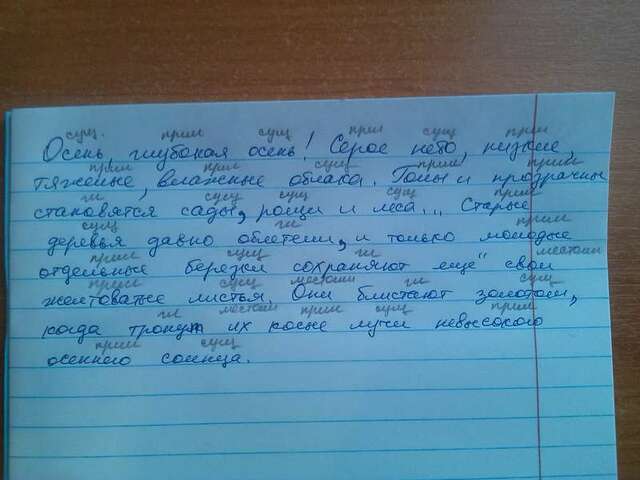 сущ. прил сущ прил сущ прил
Осень, глубокая осень! Серое небо, низкие,
прил прил сущ прил прил
тяжелые, влажные облака. Голы и прозрачны
гл сущ сущ сущ прил
становятся сады, рощи и леса... Старые
сущ гл прил
деревья давно облетели, и только молодые
прил сущ гл местоим
отдельные березки сохраняют еще свои
прил сущ местоим гл сущ
желтоватые листья. Они блистают золотом,
гл местоим прил сущ прил
когда тронут их косые лучи невысокого
прил сущ
осеннего солнца.